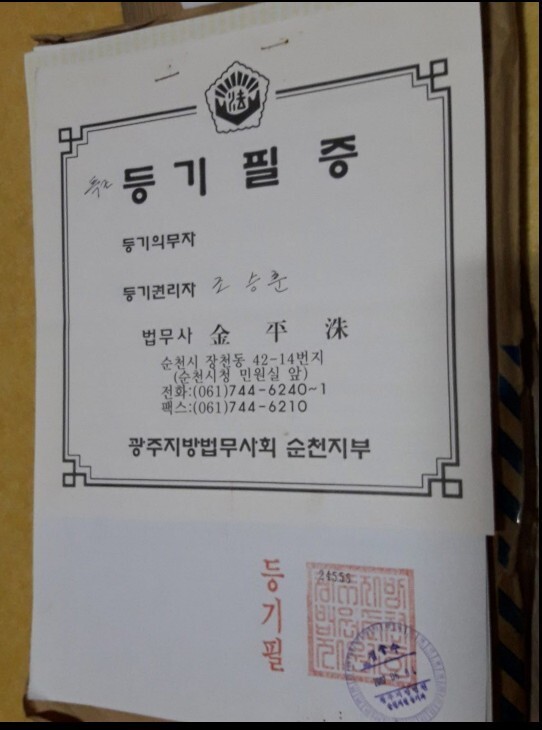 法
등기필증
등기의무자
등기권리자 조승훈
법무사 金平洙
순천시 장천동 42-14번지
(순천시청 민원실 앞)
전화:(061)744-6240~1
팩스:(061)744-6210
광주지방법무사회 순천지부
등기필
24555